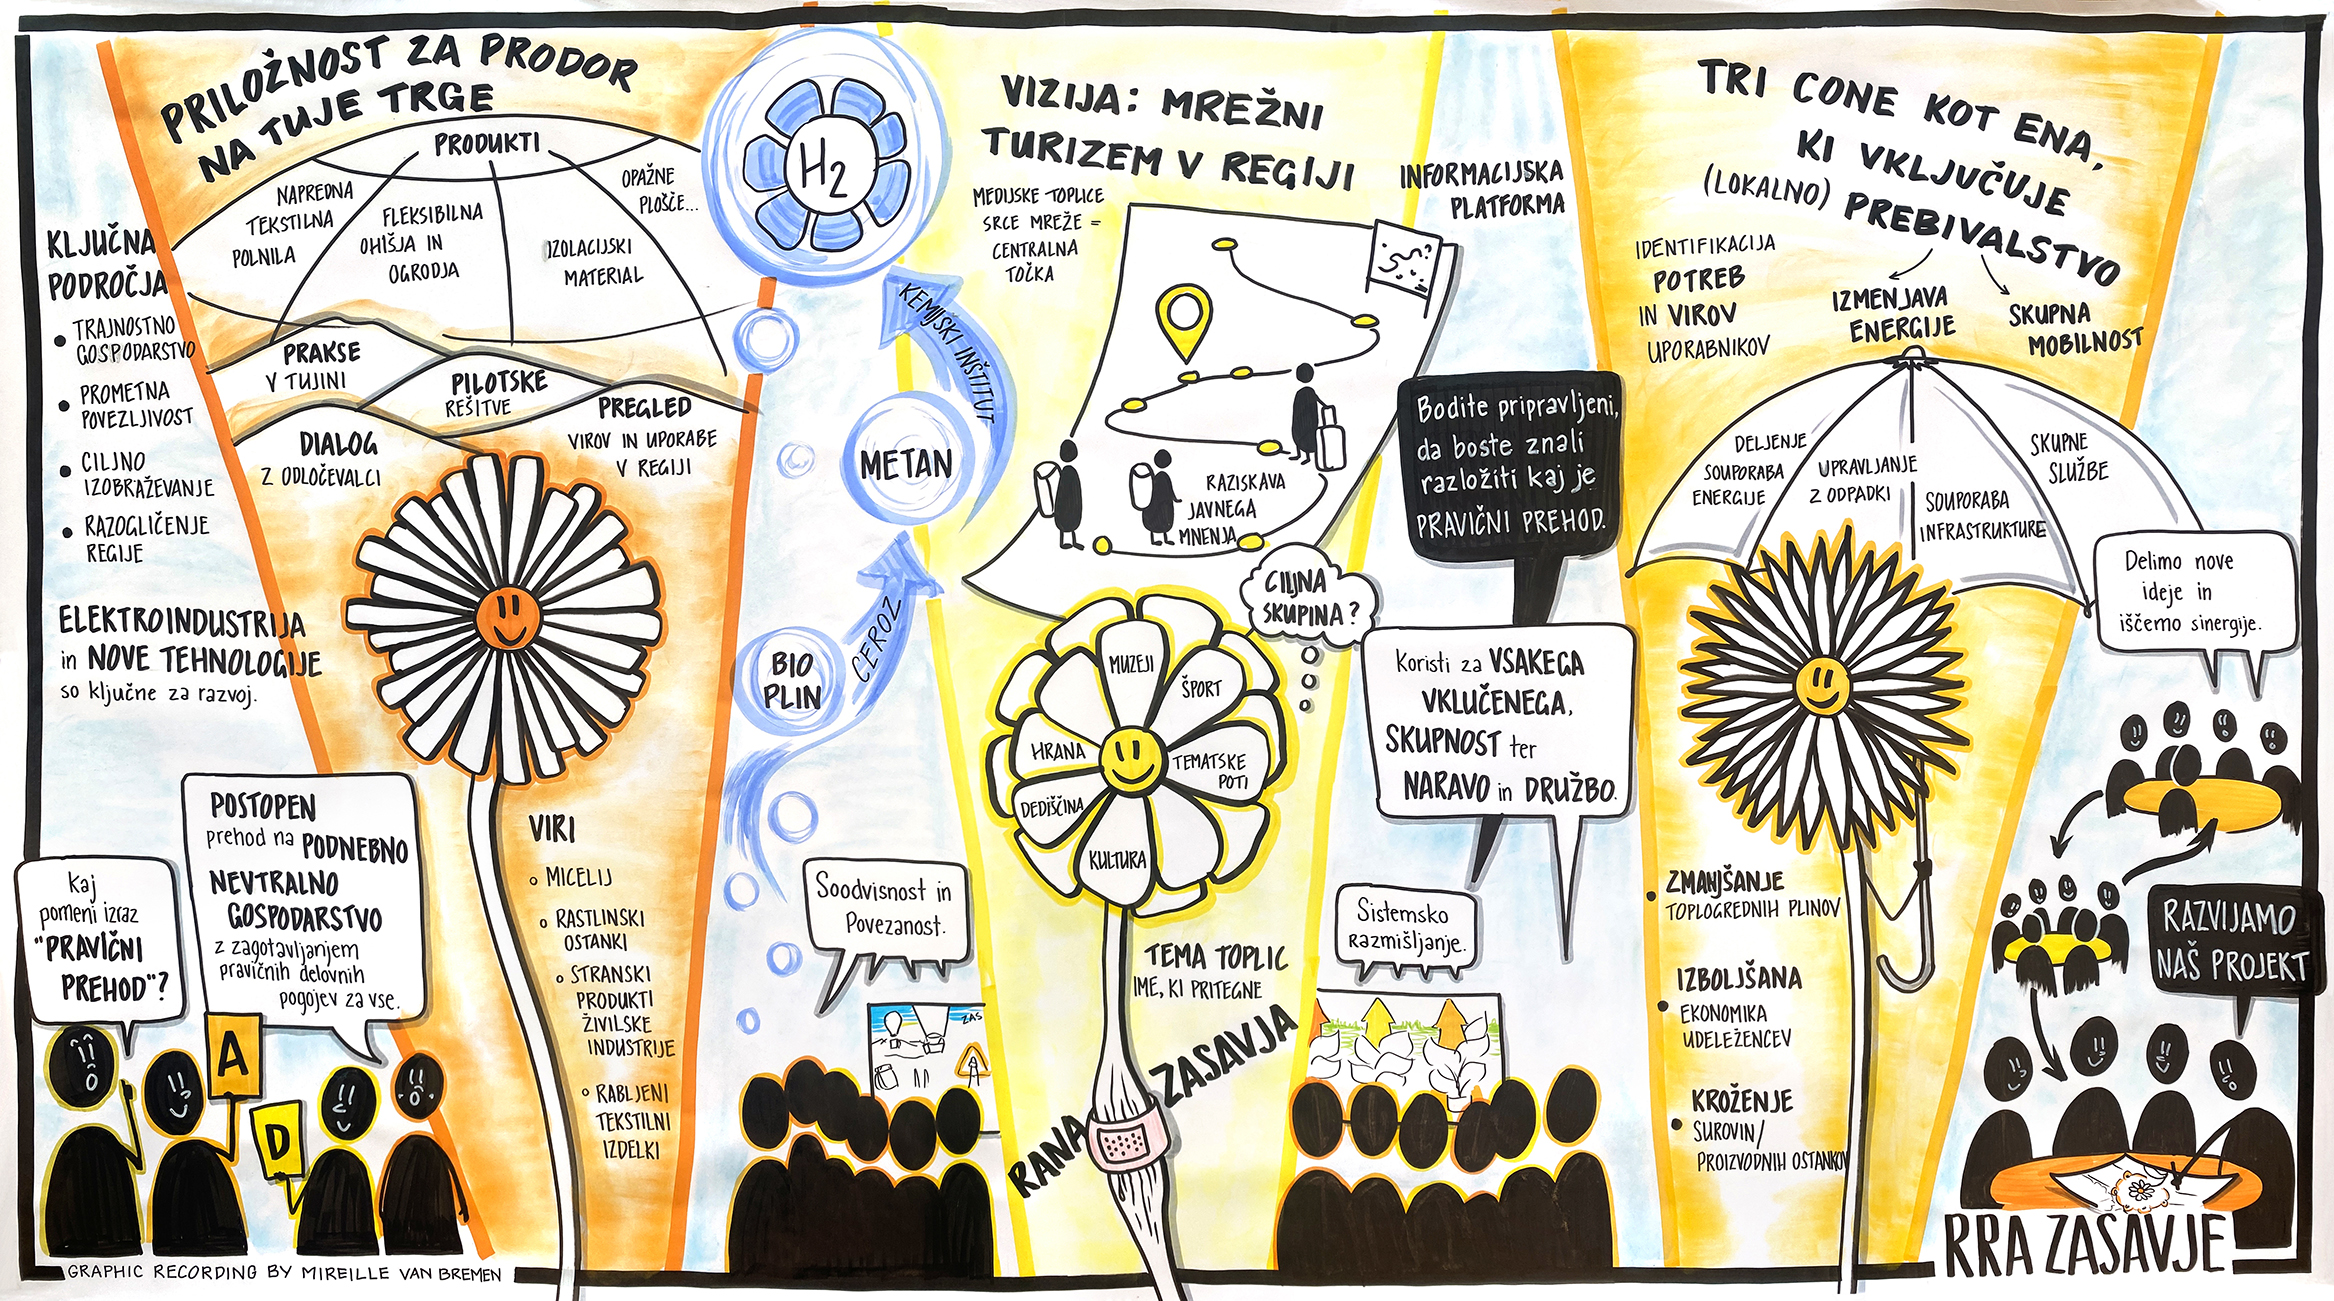 PRILOŽNOST ZA PRODOR
NA TUJE TRGE
PRODUKTI
NAPREDNA
TEKSTILNA
POLNILA
FLEKSIBILNA
OHIŠJA IN
OGRODJA
IZOLACIJSKI
MATERIAL
OPAŽNE
PLOŠČE...
KLJUČNA
PODROČJA
• TRAJNOSTNO
GOSPODARSTVO
• PROMETNA
POVEZLJIVOST
• CILJNO
IZOBRAŽEVANJE
• RAZOGLIČENJE
REGIJE
PRAKSE
V TUJINI
PILOTSKE
REŠITVE
PREGLED
VIROV IN UPORABE
V REGIJI
DIALOG
Z ODLOČEVALCI
ELEKTROINDUSTRIJA
in NOVE TEHNOLOGIJE
so ključne za razvoj.
Kaj
pomeni izraz
"PRAVIČNI
PREHOD"?
POSTOPEN
prehod na PODNEBNO
NEVTRALNO
GOSPODARSTVO
z zagotavljanjem
pravičnih delovnih
pogojev za vse.
A
D
VIRI
o MICELIJ
o RASTLINSKI
OSTANKI
o STRANSKI
PRODUKTI
ŽIVILSKE
INDUSTRIJE
o RABLJENI
TEKSTILNI
IZDELKI
GRAPHIC RECORDING BY MIREILLE VAN BREMEN
H2
KEMIJSKI INŠTITUT
METAN
CEROZ
BIO
PLIN
Soodvisnost in
Povezanost.
ZAS
VIZIJA: MREŽNI
TURIZEM V REGIJI
MEDIJSKE TOPLICE
SRCE MREŽE =
CENTRALNA
TOČKA
INFORMACIJSKA
PLATFORMA
RAZISKAVA
JAVNEGA
MNENJA
CILJNA
SKUPINA?
MUZEJI
ŠPORT
TEMATSKE
POTI
KULTURA
DEDIŠČINA
HRANA
TEMA TOPLIC
IME, KI PRITEGNE
RANA ZASAVJA
Bodite pripravljeni,
da boste znali
razložiti kaj je
PRAVIČNI PREHOD.
Koristi za VSAKEGA
VKLUČENEGA,
SKUPNOST ter
NARAVO in DRUŽBO.
Sistemsko
razmišljanje.
TRI CONE KOT ENA,
KI VKLJUČUJE
(LOKALNO) PREBIVALSTVO
IDENTIFIKACIJA
POTREB
IN VIROV
UPORABNIKOV
IZMENJAVA
ENERGIJE
SKUPNA
MOBILNOST
DELJENJE
SOUPORABA
ENERGIJE
UPRAVLJANJE
Z ODPADKI
SOUPORABA
INFRASTRUKTURE
SKUPNE
SLUŽBE
• ZMANJŠANJE
TOPLOGREDNIH PLINOV
• IZBOLJŠANA
EKONOMIKA
UDELEŽENCEV
• KROŽENJE
SUROVIN/
PROIZVODNIH OSTANKOV
Delimo nove
ideje in
iščemo sinergije.
RAZVIJAMO
NAŠ PROJEKT
RRA ZASAVJE